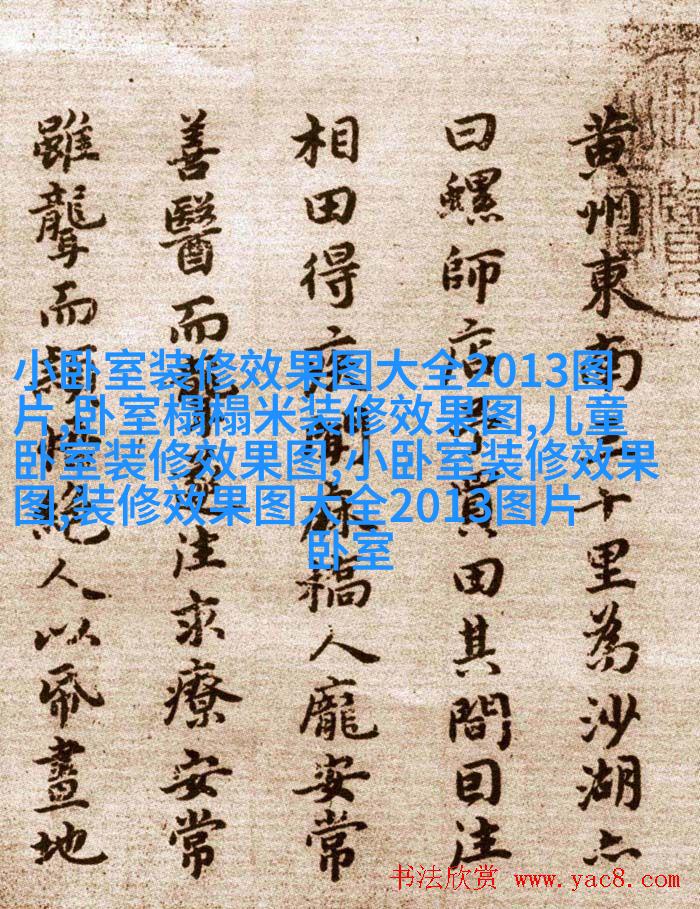 黄州東南三十里為沙湖亦
曰螺師店予買田其間因往
相田得疾聞麻橋人龐安常
善醫而聾遂往求療安常
雖聾而穎悟絕人以紙畫地
小卧室装修效果图大全2013图
片,卧室榻榻米装修效果图,儿童
卧室装修效果图,小卧室装修效果
图,装修效果图大全2013图片
卧室
书法欣赏 www.yac8.com